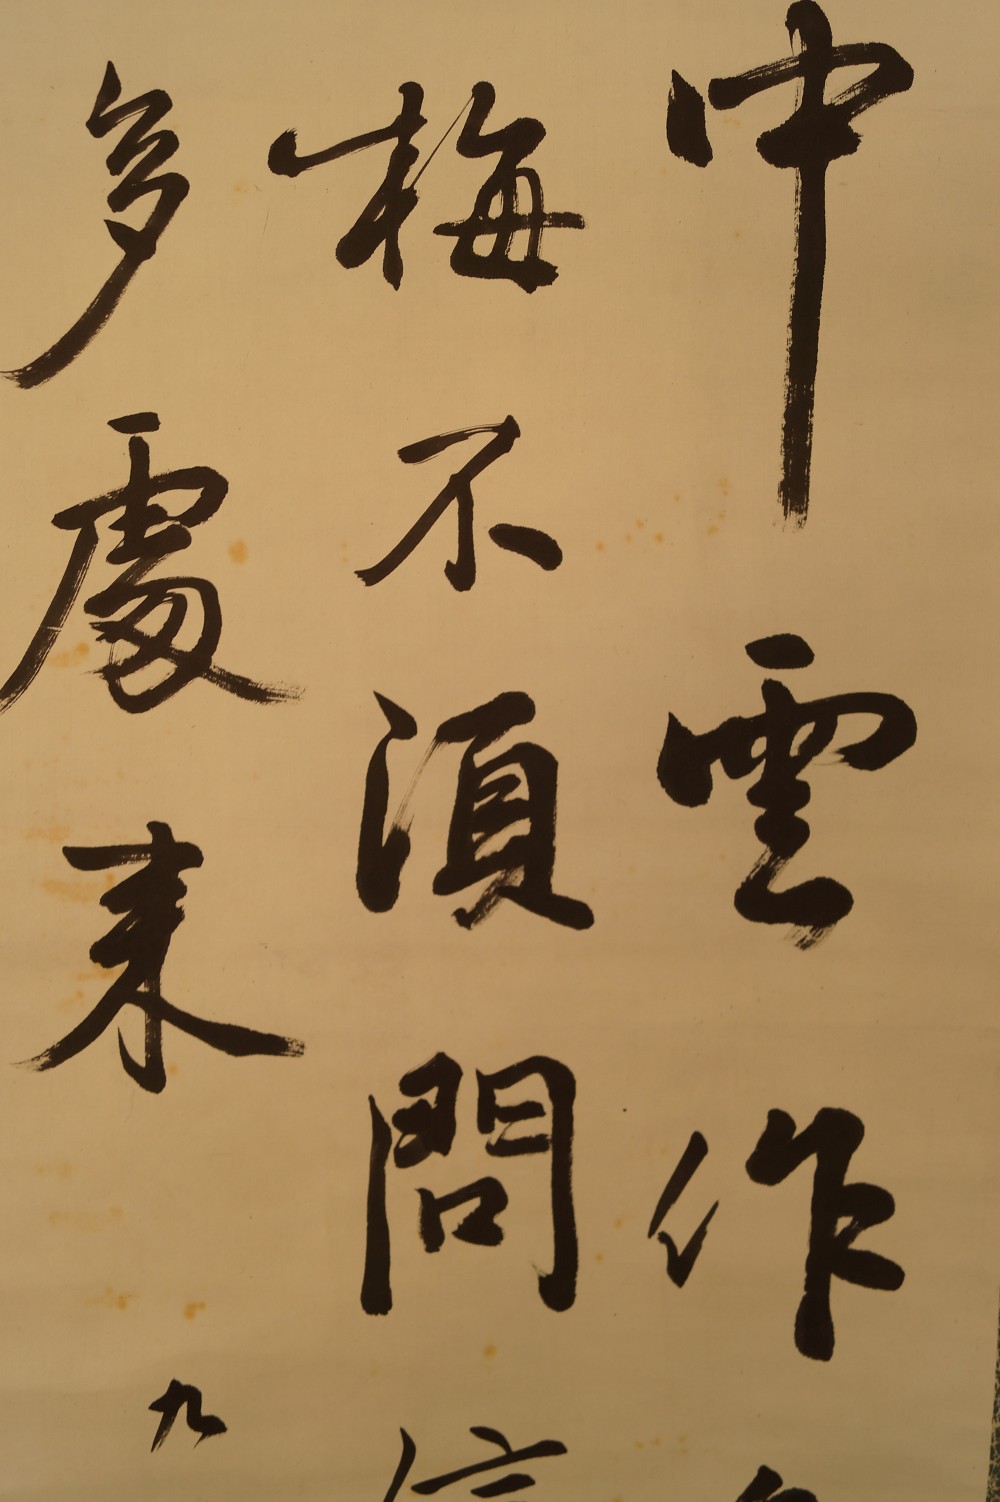 中雲作
梅不須問信
多處来九